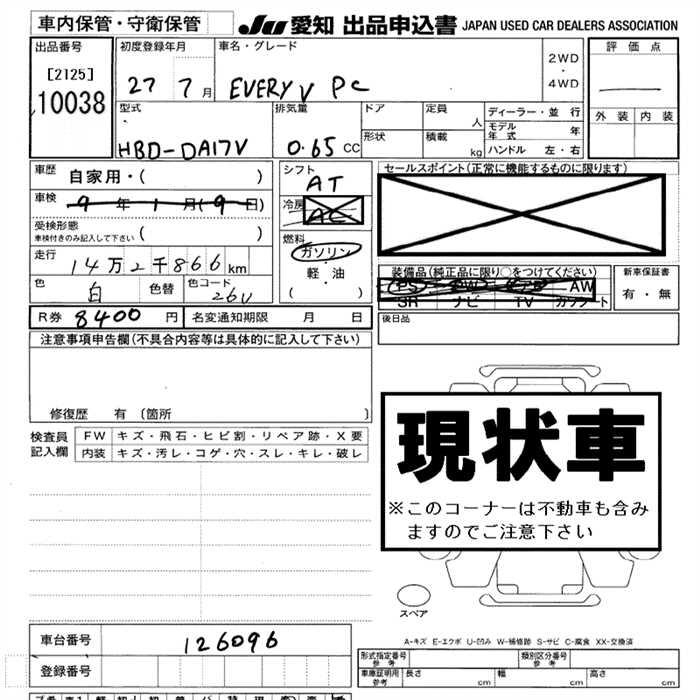 車内保管・守衛保管
JU 愛知 出品申込書 JAPAN USED CAR DEALERS ASSOCIATION
出品番号 初度登録年月 車名・グレード 2WD・4WD 評価点
[2125]
10038
27 7月 EVERY V PC
外装 内装
型式 排気量 ドア 定員 人 ディーラー・並行
形状 積載 kg モデル年式 年
HBD-DA17V 0.65 CC ハンドル 左・右
車歴 自家用・( )
シフト AT
セールスポイント(正常に機能するものに限ります)
車検 9年1月(9日)
冷房 AC
受検形態
車検付きのみ記入して下さい ( )
燃料
ガソリン・軽・油
( )
走行 14万2千866km
装備品(純正品に限り○をつけてください) 新車保証書
PS PW AW 有・無
SR ナビ TV カワシート
色 白 色替 色コード 26U
R券 8400円 名変通知期限 月 日
後日品
注意事項申告欄(不具合内容等は具体的に記入して下さい)
修復歴 有 〔箇所 〕
現状車
※このコーナーは不動車も含み
ますのでご注意下さい
検査員
記入欄
FW キズ・飛石・ヒビ割・リペア跡・X要
内装 キズ・汚レ・コゲ・穴・スレ・キレ・破レ
スペア
A-キズ E-エクボ U-凹み W-補修跡 S-サビ C-腐食 XX-交換済
車台番号 126096
登録番号
形式指定番号 参考 類別区分番号 参考
車庫証明用 参考 長さ cm 幅 cm 高さ cm